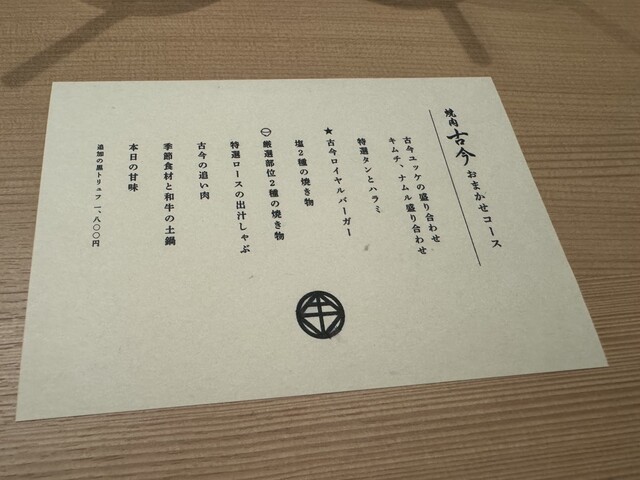 焼肉 古今 おまかせコース
古今ユッケの盛り合わせ
キムチ、ナムル盛り合わせ
特選タンとハラミ
★ 古今ロイヤルバーガー
塩2種の焼き物
厳選部位2種の焼き物
特選ロースの出汁しゃぶ
古今の追い肉
季節食材と和牛の土鍋
本日の甘味
追加の黒トリュフ 一、八〇〇円